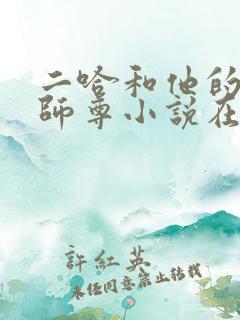 二哈和他的
師尊小説在
許紅英
未经同意禁止转载